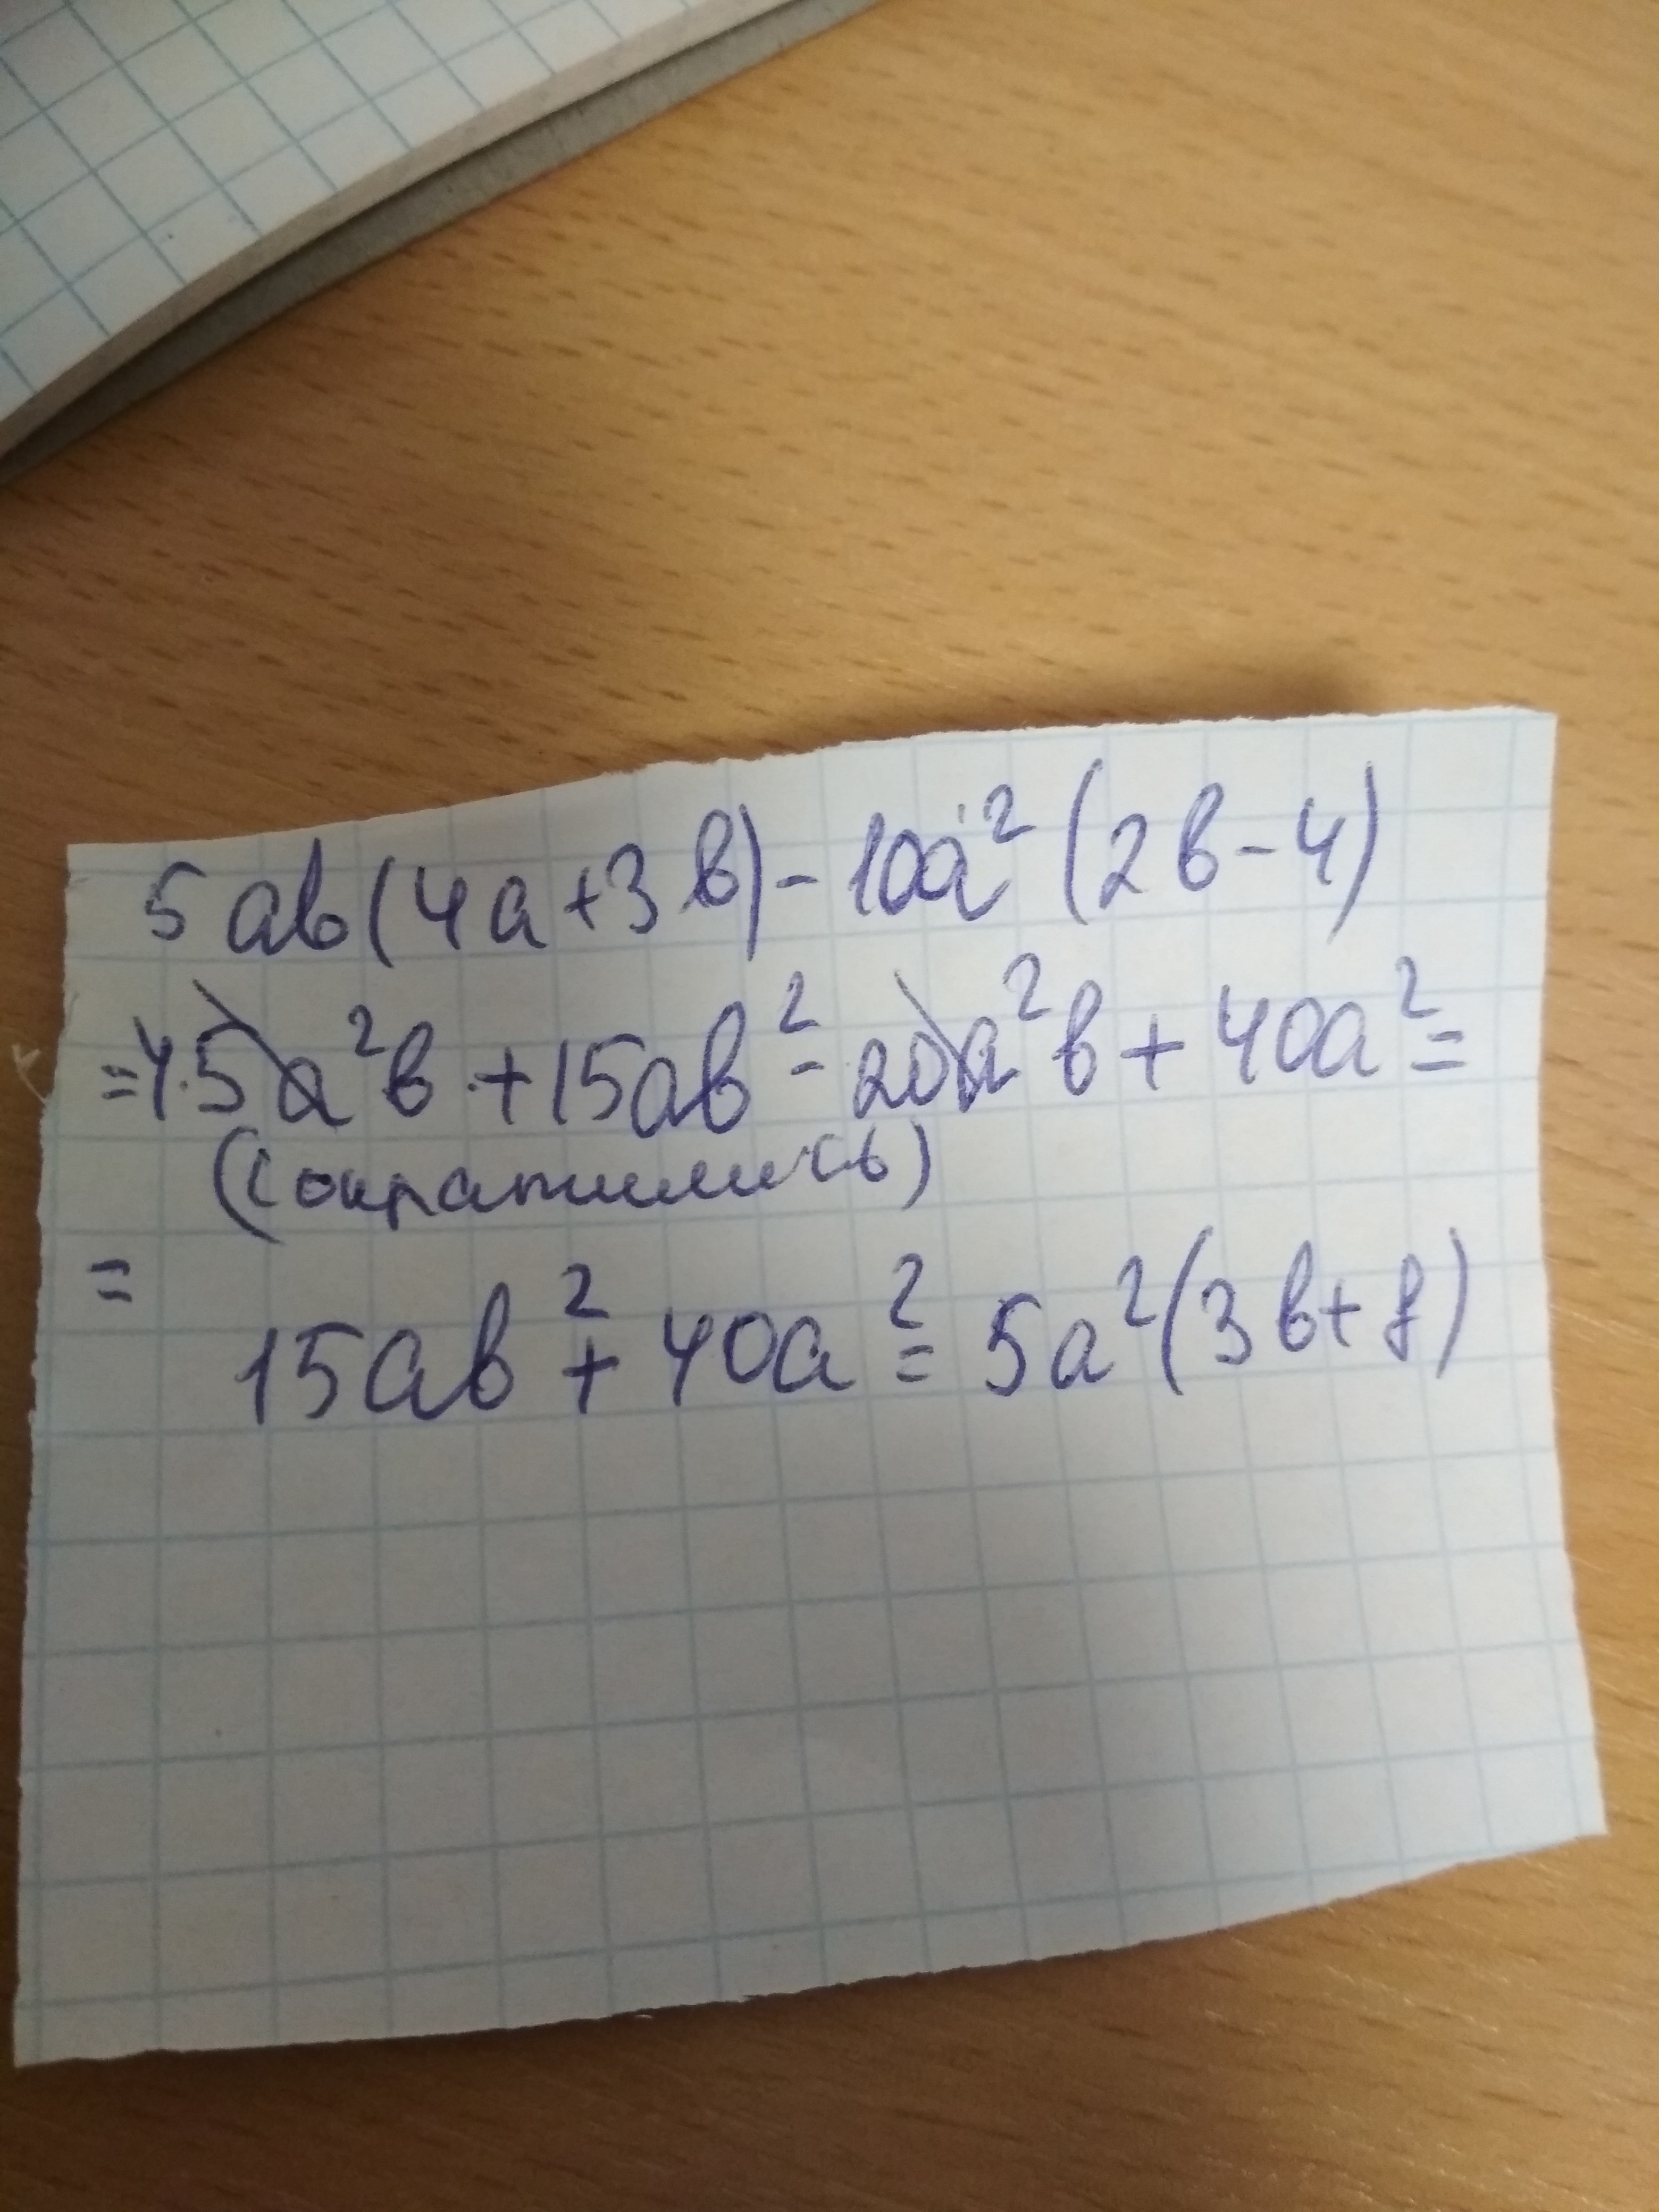 5ab(4a+3b)-10a²(2b-4)
=4·5a²b+15ab²-20a²b+40a²=
(сократились)
=
15ab²+40a²=5a²(3b+8)